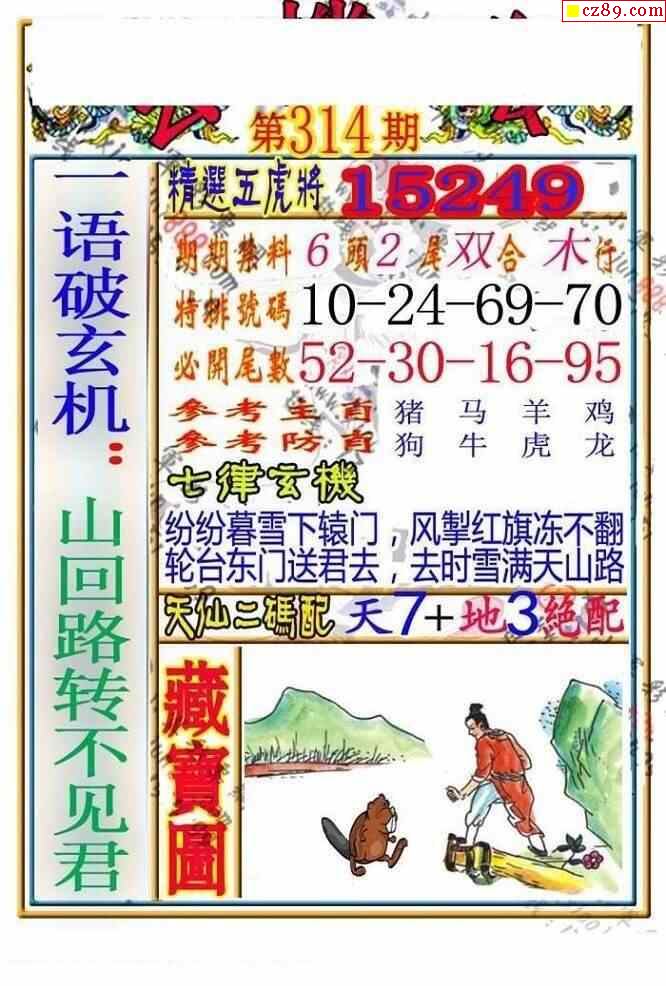 cz89.com
第314期
一语破玄机：
山回路转不见君
精選五虎將 15249
期期禁料 6頭2尾双合 木行
特排號碼 10-24-69-70
必開尾數 52-30-16-95
參考主肖 猪 马 羊 鸡
參考防肖 狗 牛 虎 龙
七律玄機
纷纷暮雪下辕门，风掣红旗冻不翻
轮台东门送君去，去时雪满天山路
天仙二碼配 天7+地3絕配
藏寶圖